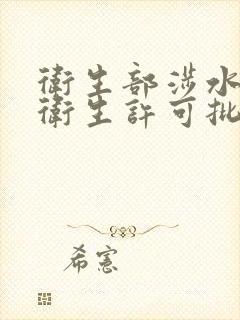 衛生部涉水
衛生許可批
希憲